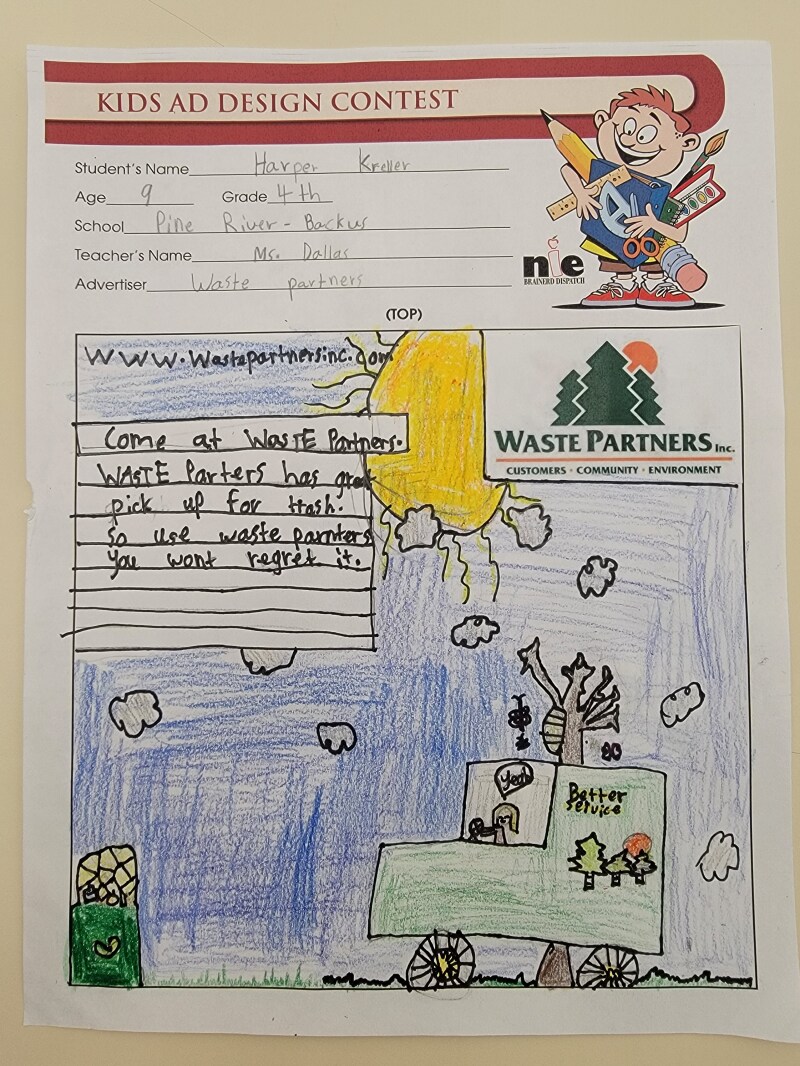 KIDS AD DESIGN CONTEST
Student's Name Harper Kreller
Age 9 Grade 4th
School Pine River - Backus
Teacher's Name Ms. Dallas
Advertiser Waste partners
nie
BRAINERD DISPATCH
(TOP)
www.wastepartnersinc.com
WASTE PARTNERS Inc.
CUSTOMERS • COMMUNITY • ENVIRONMENT
Come at WasTE Partners.
WASTE Parters has great
pick up for trash.
So use waste parnters
you wont regret it.
Yeah
Better
service